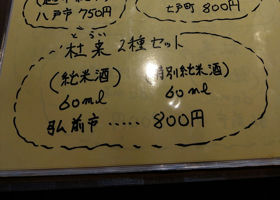 八戸市 750円
七戸町 800円
とらい
杜来 2種セット
(純米酒) 特別純米酒)
60ml 60ml
弘前市 ..... 800円